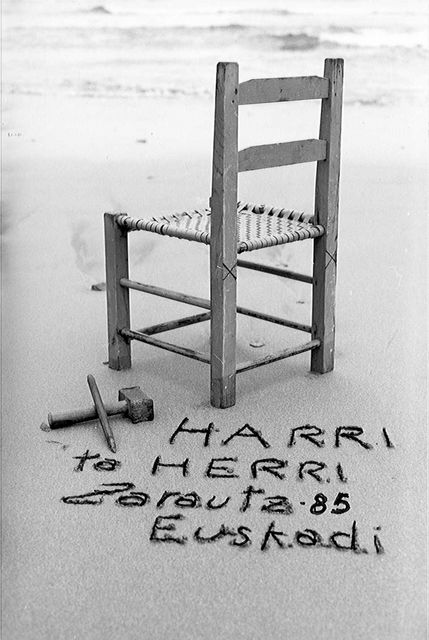 HARRI
ta HERRI
Zarautz-85
Euskadi